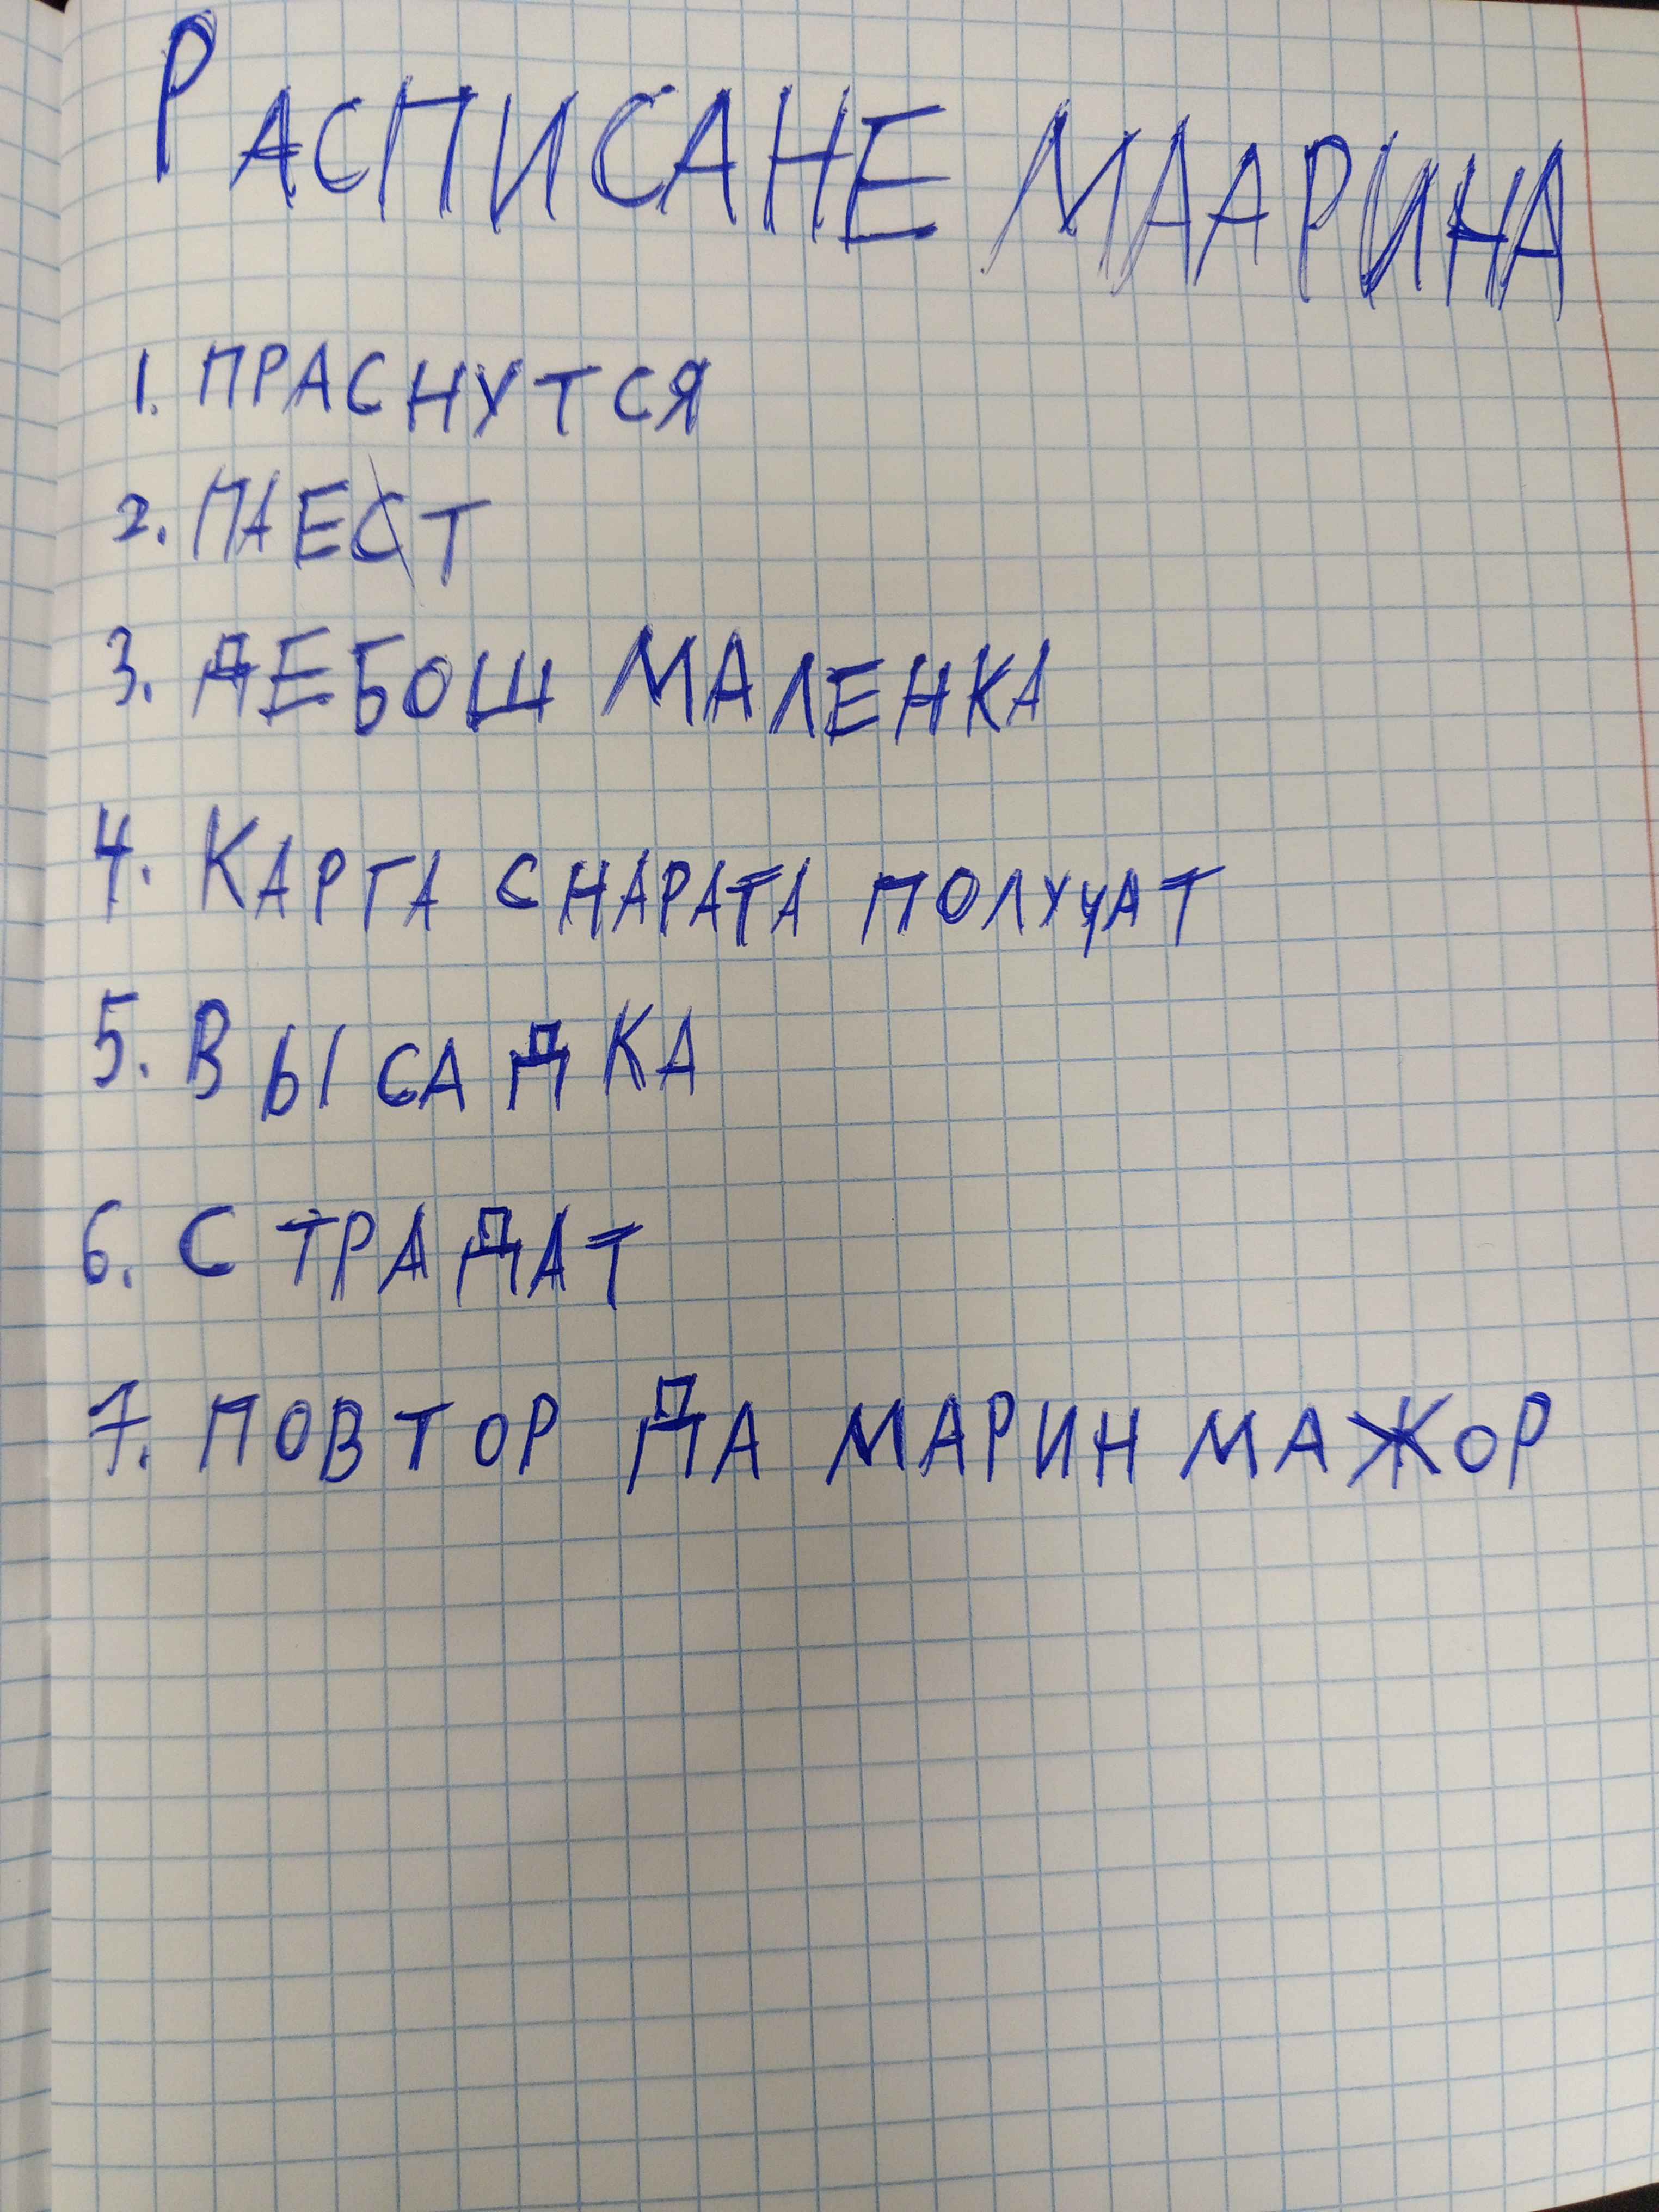 РАСПИСАНЕ МААРИНА
1. ПРАСНУТСЯ
2. ПАЕСТ
3. ДЕБОШ МАЛЕНКА
4. КАРГА СНАРАТА ПОЛУЧАТ
5. ВЫСАДКА
6. СТРАДАТ
7. ПОВТОР ДА МАРИН МАЖОР